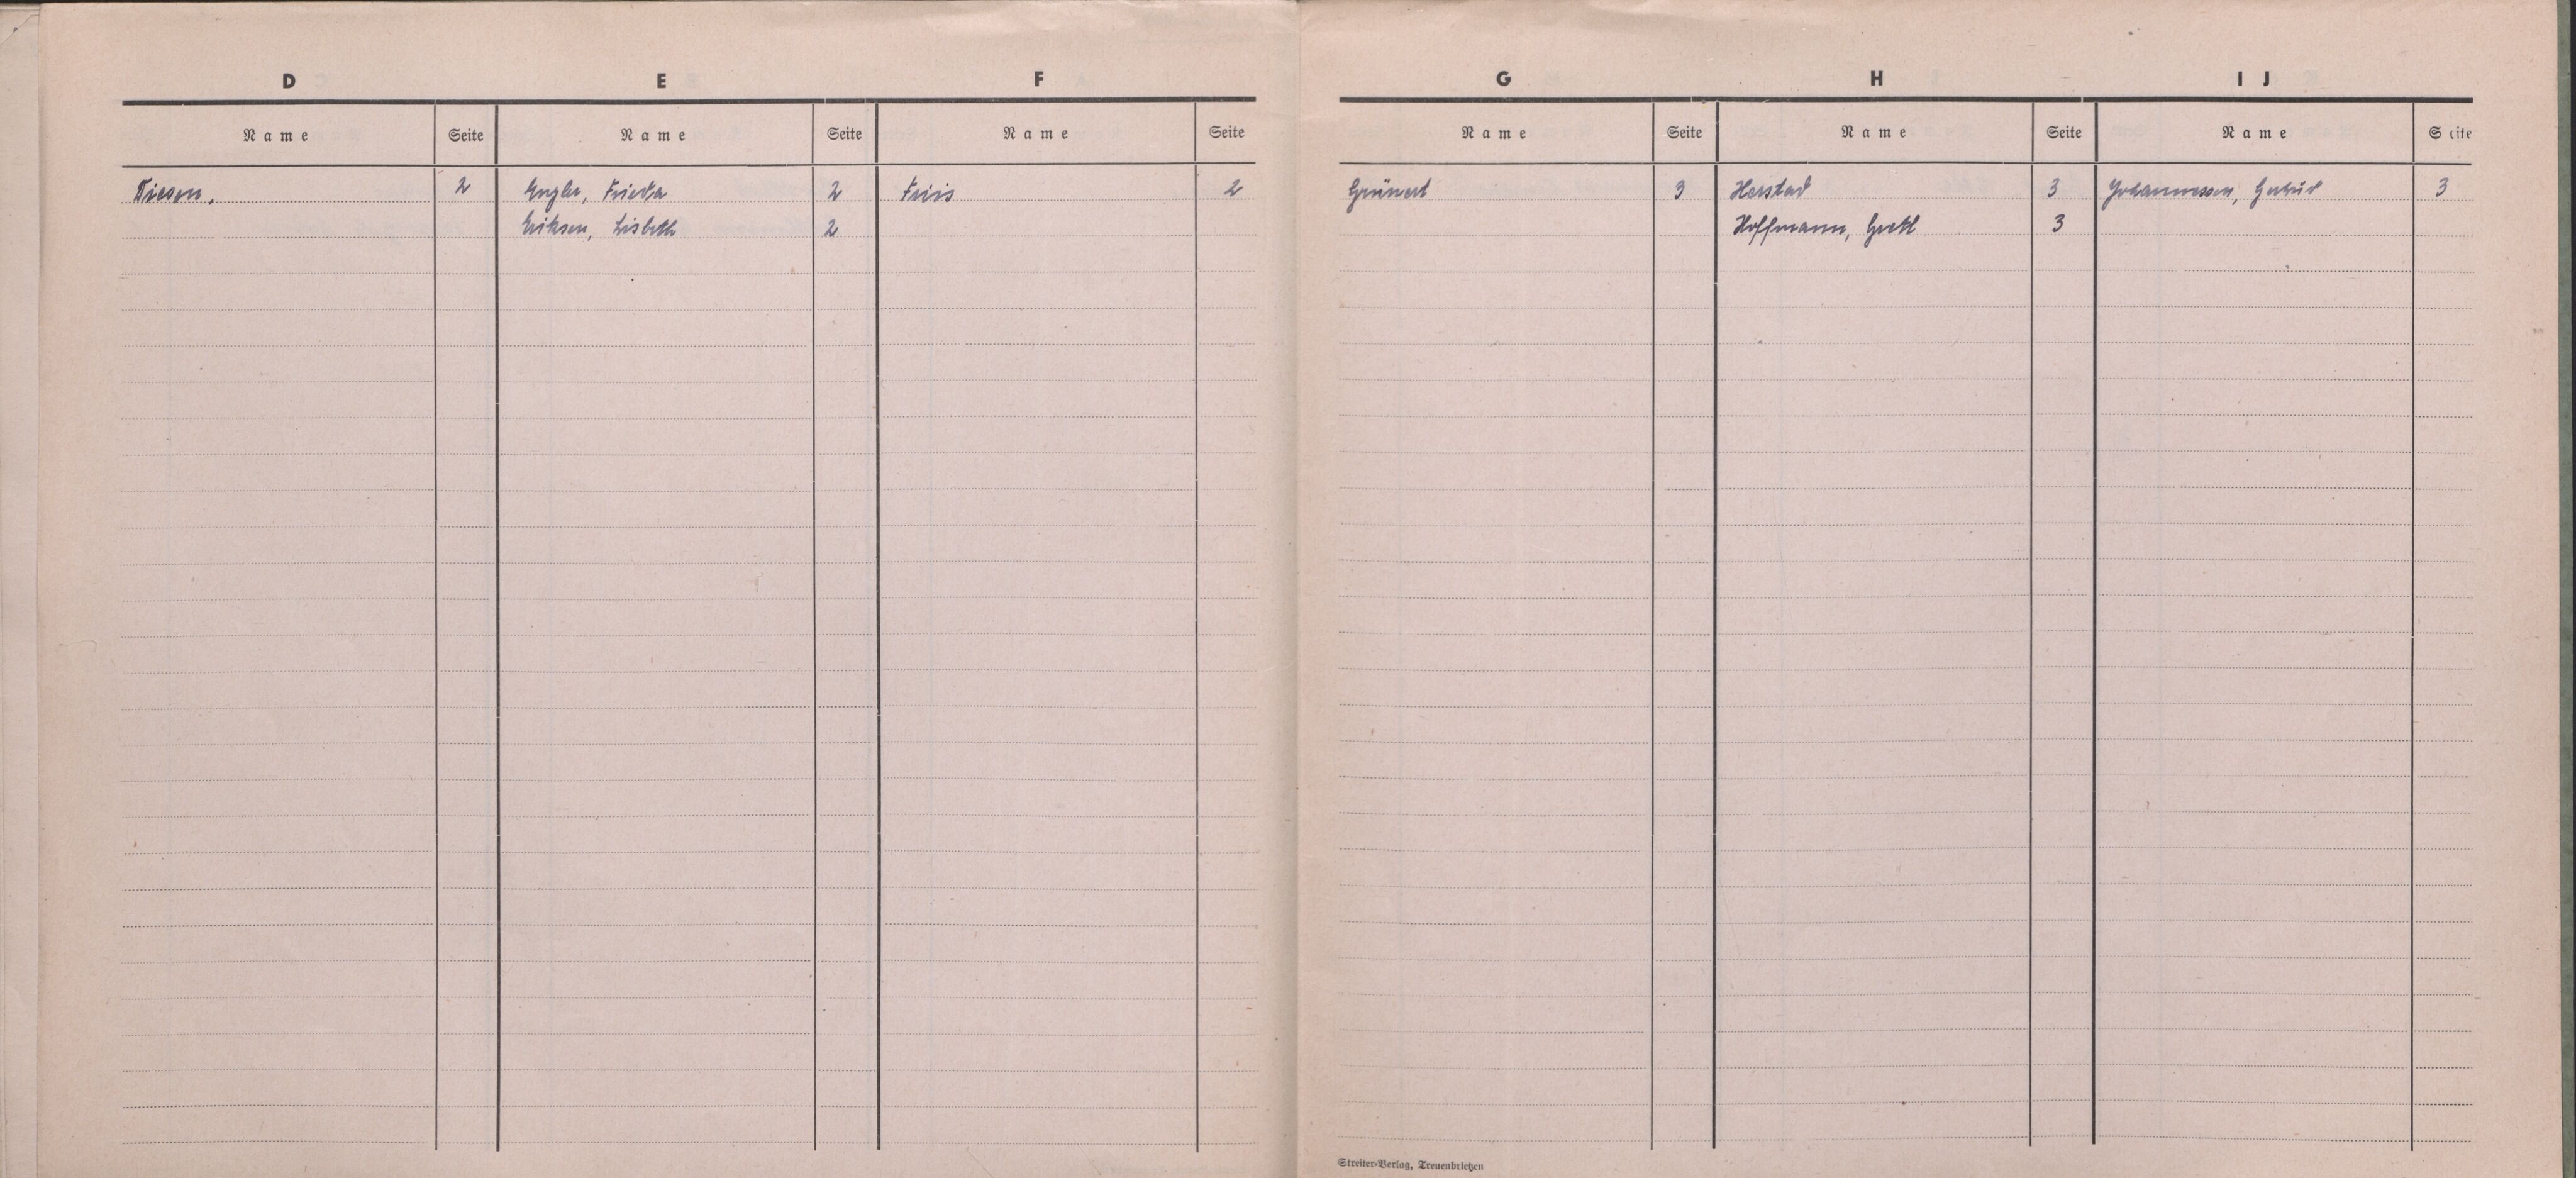 D E F G H I J
Name Seite Name Seite Name Seite Name Seite Name Seite Name Seite
2 Engler, Frieda 2 Friis 2 Grünert 3 Herstad 3 Johannessen, Gertrud 3
Eriksen, Lisbeth 2 Hoffmann, Gretl 3
Streiter-Verlag, Treuenbrietzen